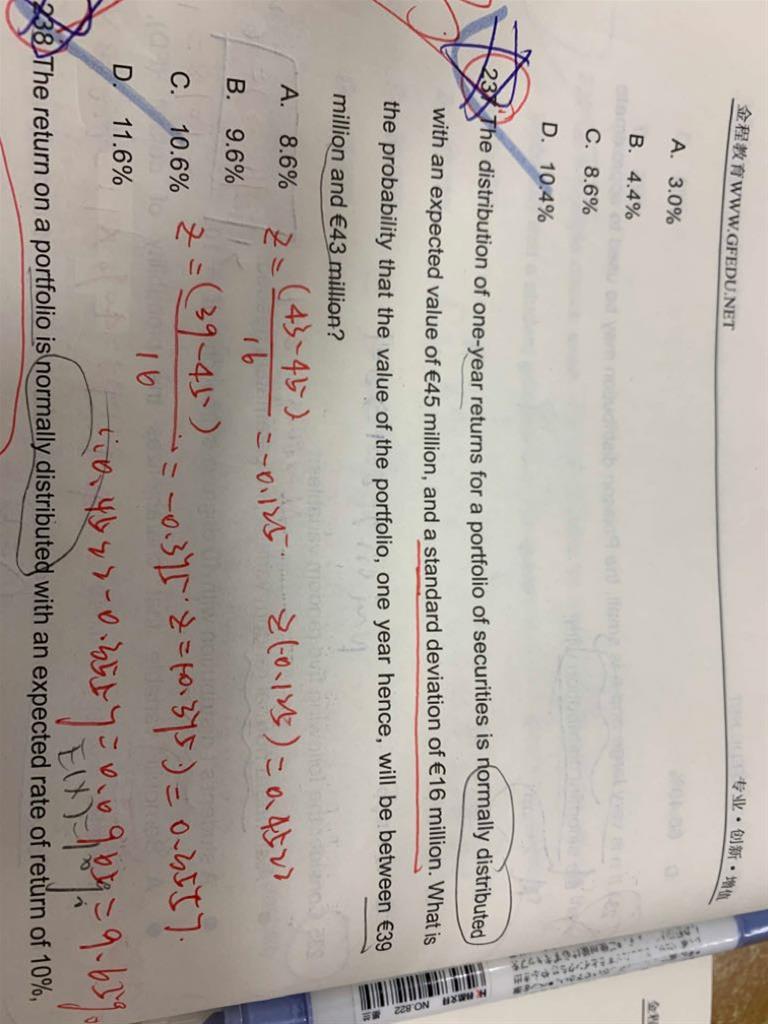 金程教育WWW.GFEDU.NET
专业·创新·增值
A. 3.0%
B. 4.4%
C. 8.6%
D. 10.4%
237. The distribution of one-year returns for a portfolio of securities is normally distributed
with an expected value of €45 million, and a standard deviation of €16 million. What is
the probability that the value of the portfolio, one year hence, will be between €39
million and €43 million?
A. 8.6%
B. 9.6%
C. 10.6%
D. 11.6%
z = (43-45) / 16 = -0.125. z(-0.125) = 0.4522
z = (39-45) / 16 = -0.375. z=(0.375.) = 0.3557.
0.4522-0.3557 = 0.0965 = 9.65%
E(X)=10%
238. The return on a portfolio is normally distributed with an expected rate of return of 10%,